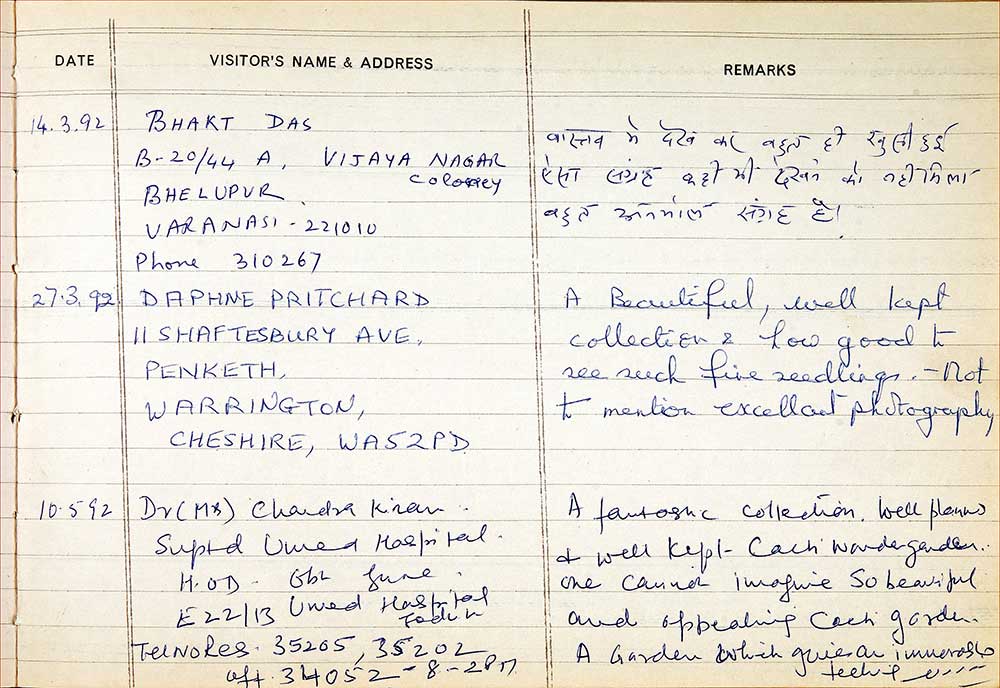 DATE
VISITOR'S NAME & ADDRESS
REMARKS
14.3.92
BHAKT DAS
B-20/44 A, VIJAYA NAGAR
Coloney
BHELUPUR
VARANASI - 221010
Phone 310267
वास्तव मे देख कर बहुत ही खुशी हुई
ऐसा संग्रह कही भी देखने को नही मिला
बहुत अनमोल संग्रह है।
27.3.92
DAPHNE PRITCHARD
11 SHAFTESBURY AVE,
PENKETH,
WARRINGTON,
CHESHIRE, WA52PD
A Beautiful, well kept
collection & how good to
see such fine seedlings. - Not
to mention excellent photography
10.5.92
Dr (Mrs) Chandra Kiran.
Suptd Umed Hospital.
H.O.D.
E22/13 Umed Hospital
Tel No Res. 35205, 35202
Off. 34052 - 8-2PM
A fantastic collection. Well planned
& well kept- Cacti wonder garden.
One cannot imagine so beautiful
and appealing Cacti garden.
A Garden which gives an